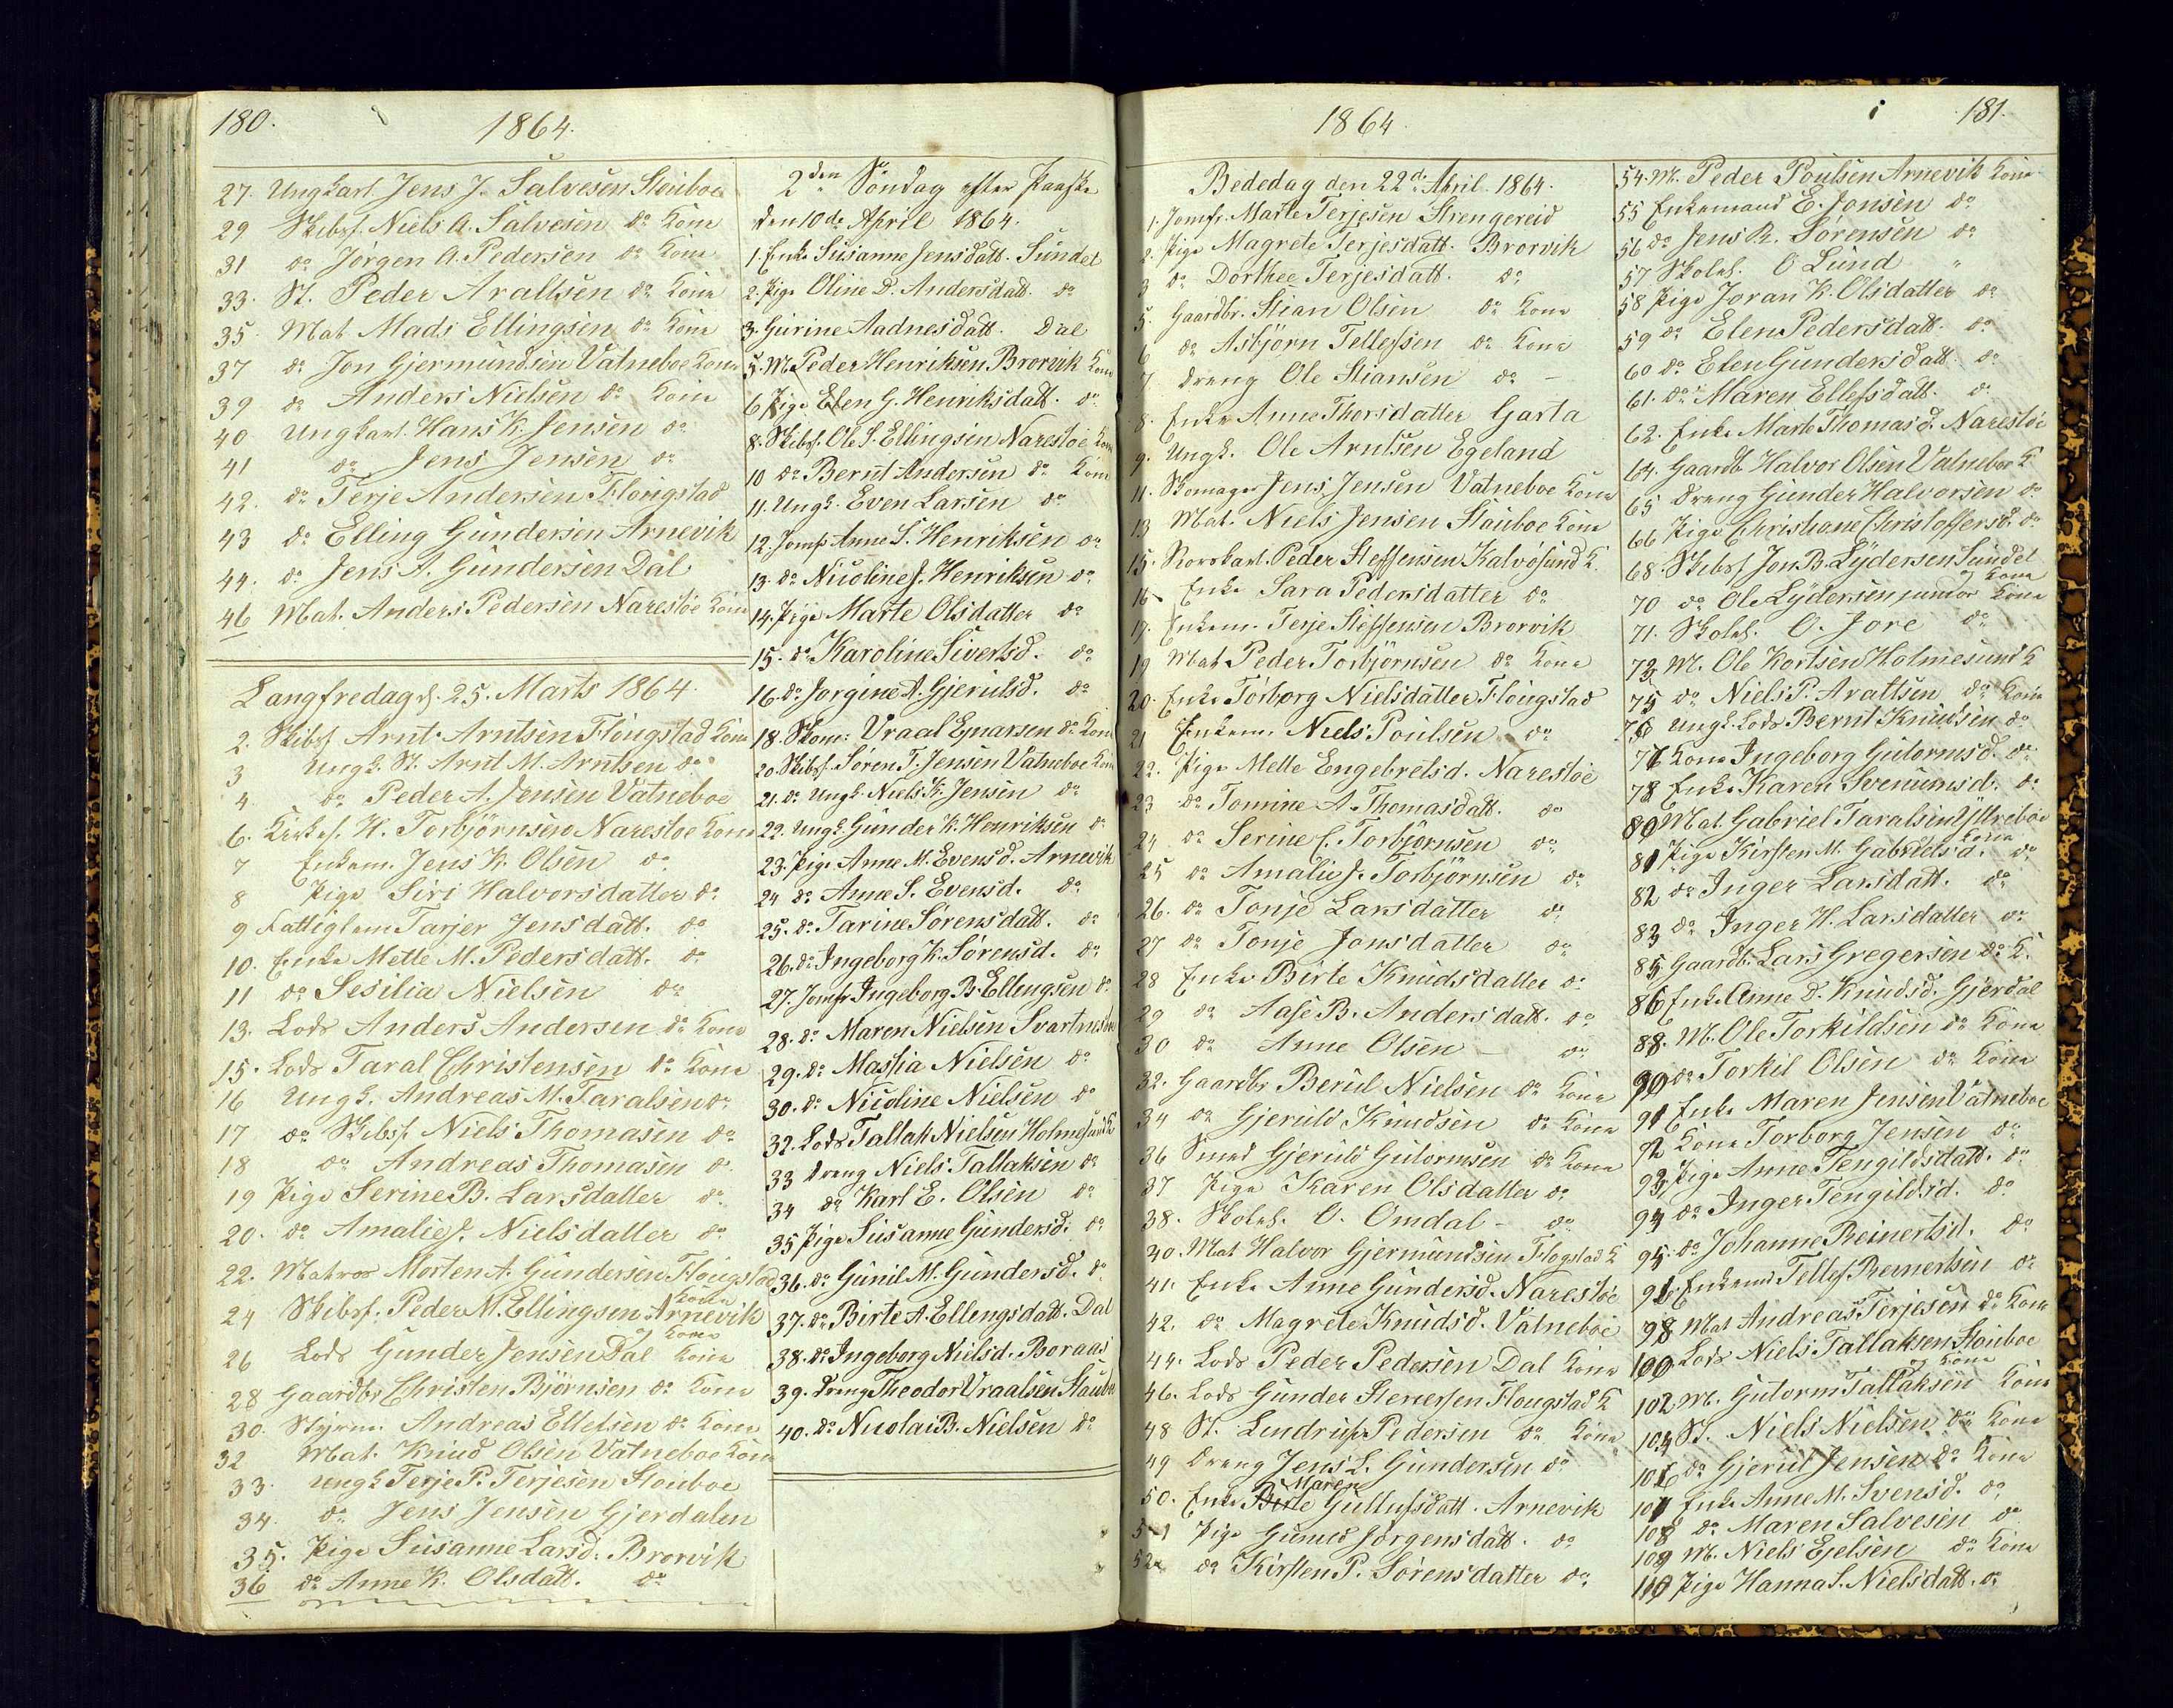 180.
1864.
27. Ungkarl Jens J. Salvesen Stouboe
29 Skibsf. Niels A. Salvesen do Kone
31 do Jørgen A. Pedersen do Kone
33. St. Peder Araltsen do Kone
35. Mat Mads Ellingsen do Kone
37 do Jon Gjermundsen Vatneboe Kone
39 do Anders Nielsen do Kone
40. Ungkarl Hans K. Jensen do
41 do Jens Jensen do
42. do Terje Andersen Flougstad
43 do Elling Gundersen Arnevik
44. do Jens A. Gundersen Dal
46 Mat. Anders Pedersen Narestøe Kone
Langfredag d. 25. Marts 1864.
2. Skibsf Arnt Arntsen Flougstad Kone
3 Ungk. St. Arnt M. Arntsen do
4. do Peder A. Jensen Vatneboe
6. Kirkes. H. Torbjørnsen Narestøe Kone
7 Enkem. Jens K. Olsen do
8 Pige Siri Halvorsdatter do
9 Fattiglem Tarjer Jensdatt. do
10. Enke Mette M. Pedersdatt. do
11 do Sesilia Nielsen do
13. Lods Anders Andersen do Kone
15. Lods Taral Christensen do Kone
16 Ungk. Andreas M. Taralsen do
17 do Skibsf. Niels Thomasen do
18 do Andreas Thomasen do
19 Pige Serine B. Larsdatter do
20. do Amalie J. Nielsdatter do
22. Matros Morten A. Gundersen Flougstad
Kone
24 Skibsf. Peder M. Ellingsen Arnevik
og Kone
26 Lods Gunder Jensen Dal Kone
28 Gaardbr Christen Bjørnsen do Kone
30. Styrm. Andreas Ellefsen do Kone
32 Mat. Knud Olsen Vatneboe Kone
33. Ungk Terje P. Terjesen Stouboe
34. do Jens Jensen Gjerdalen
35. Pige Susanne Larsd. Brorvik
36 do Anne K. Olsdatt. do
2den Søndag efter Paaske
den 10de April 1864.
1. Enke Susanne Jensdatt. Sundet
2. Pige Oline D. Andersdatt. do
3. Gurine Aadnesdatt. Dal
5. M. Peder Henriksen Brorvik Kone
6 Pige Elen G. Henriksdatt. do
8. Skibsf. Ole S. Ellingsen Narestøe Kone
10 do Bernt Andersen do Kone
11. Ungk. Even Larsen do
12. Jomfr Anne S. Henriksen do
13. do Nicoline J. Henriksen do
14. Pige Marte Olsdatter do
15. do Karoline Sivertsd. do
16. do Jorgine A. Gjerulsd. do
18. Skom: Vraal Enarsen do Kone
20. Skibsf. Søren T. Jensen Vatneboe Kone
21. do Ungk. Niels K. Jensen do
22. Ungk. Gunder K. Henriksen do
23. Pige Anne M. Evensd. Arnevik
24 do Anne S. Evensd. do
25. do Tarine Sørensdatt. do
26. do Ingeborg K. Sørensd. do
27. Jomfr Ingeborg B. Ellingsen do
28. do Maren Nielsen Svartnes
29. do Massia Nielsen do
30. do Nicoline Nielsen do
32. Lods Tallak Nielsen Holmesund Ko
33 Dreng Niels Tallaksen do
34 do Karl E. Olsen do
35 Pige Susanne Gundersd. do
36. do Gunil M. Gundersd. do
37. do Birte A. Ellengsdatt. Dal
38. do Ingeborg Nielsd. Boraas
39. Dreng Theodor Vraalsen Stauboe
40. do Nicolai B. Nielsen do
1864.
181.
Bededag den 22de April 1864.
1. Jomfr. Marte Terjesen Strengereid
2. Pige Magrete Terjesdatt. Brorvik
3 do Dorthee Terjesdatt. do
5. Gaardbr. Stian Olsen do Kone
6 do Asbjørn Tellefsen do Kone
7 Dreng Ole Stiansen do –
8. Enke Anne Thorsdatter Garta
9. Ungk. Ole Arntsen Egeland
11. Skomager Jens Jensen Vatneboe Kone
13 Mat. Niels Jensen Stauboe Kone
15. Skovkarl Peder Steffensen Kalvøsund K.
16 Enke Sara Pedersdatter do
17. Enkem. Terje Steffensen Brorvik
19 Mat Peder Torbjørnsen do Kone
20. Enke Torborg Nielsdatter Flougstad
21 Enkem. Niels Poulsen do
22. Pige Mette Engebretsd. Narestøe
23 do Tomine A. Thomasdatt. do
24 do Serine C. Torbjørnsen do
25 do Amalie J. Torbjørnsen do
26. do Tonje Larsdatter do
27 do Tonje Jonsdatter do
28 Enke Birte Knudsdatter do
29 do Aase B. Andersdatt. do
30 do Anne Olsen – do
32. Gaardbr Berul Nielsen do Kone
34 do Gjeruld Knudsen do Kone
36 Smed Gjeruld Gutormsen do Kone
37 Pige Karen Olsdatter do
38. Skolel. O. Omdal – do
40. Mat Halvor Gjermundsen Flogstad K
41. Enke Anne Gundersd. Narestøe
42. do Magrete Knudsd. Vatneboe
44. Lods Peder Pedersen Dal Kone
46. Lods Gunder Stenersen Flougstad K
48 St. Lendrup Pedersen do Kone
49 Dreng Jens L. Gundersen do
Maren
50. Enke Birte Gullufsdatt. Arnevik
51 Pige Guned Jørgensdatt. do
52 do Kirsten P. Sørensdatter do
54. M. Peder Poulsen Arnevik Kone
55 Enkemand E. Jonsen do
56 do Jens K. Sørensen do
57 Skolel. O Lund "
58 Pige Joran K. Olsdatter do
59 do Elen Pedersdatt. do
60 do Elen Gundersdatt. do
61. do Maren Ellefsdatt. do
62. Enke Marte Thomasd. Narestøe
64. Gaardb. Halvor Olsen Vatneboe K
65 Dreng Gunder Halvorsen do
66 Pige Christiane Christoffersd. do
68. Skibsf Jon B. Lydersen Sundet
og Kone
70 do Ole Lydersen junior Kone
71. Skolel. O. Jore do
73 M. Ole Kortsen Holmesund K
75 do Niels P. Araltsen do Kone
76 Ungk. Lods Bernt Knudsen do
77 Kone Ingeborg Gutormsd. do
78 Enke Karen Svenumsd. do
80 Mat. Gabriel Taralsen Yttreboe
Kone
81 Pige Kirsten M. Gabrielsd. do
82 do Inger Larsdatt. do
83 do Inger H. Larsdatter do
85 Gaardb. Lars Gregersen do K.
86 Enke Anne D. Knudsd. Gjerdal
88. M. Ole Torkildsen do Kone
90 do Torkil Olsen do Kone
91 Enke Maren Jensen Vatneboe
92 Kone Torborg Jensen do
93 Pige Anne Tengildsdatt. do
94 do Inger Tengildsd. do
95. do Johanne Reinertsd. do
96 Enkemd Tellef Reinertsen do
98 Mat Andreas Terjesen do Kone
100. Lods Niels Tallaksen Stouboe
og Kone
102. M. Gutorm Tallaksen Kone
104 St. Niels Nielsen do Kone
106 do Gjerul Jensen do Kone
107 Enke Anne M. Svensd. do
108 do Maren Salvesen do
109 M. Niels Ejelsen do Kone
110 Pige Hanna S. Nielsdatt. do